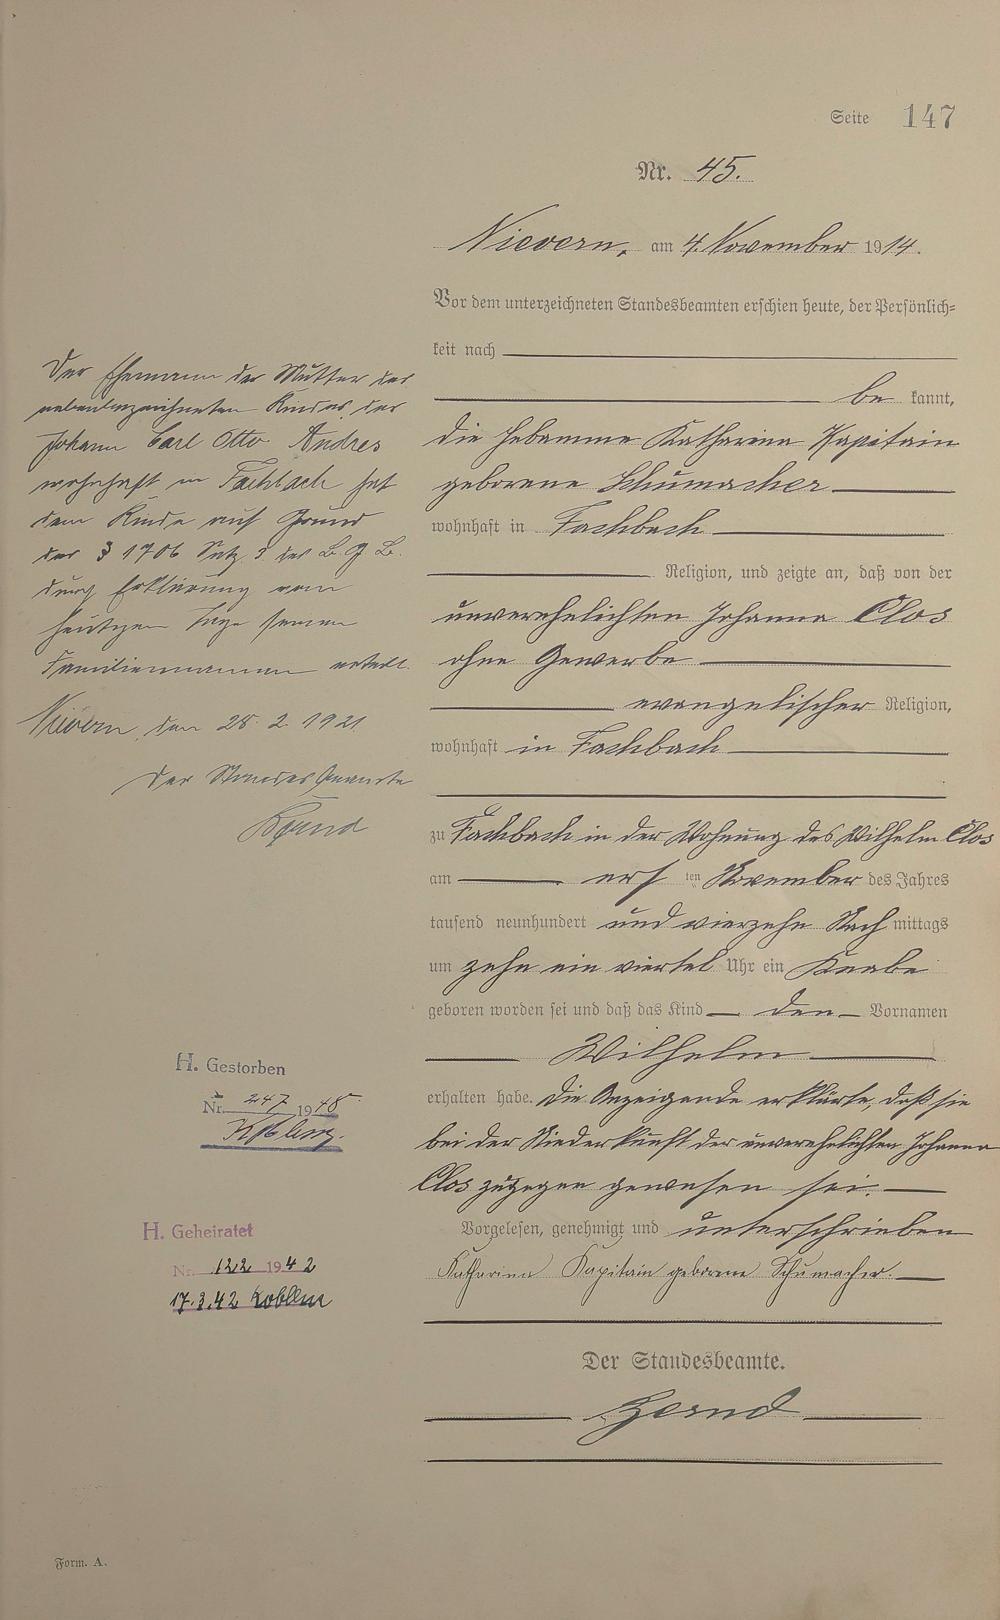 Seite 147
Nr. 45.
Nievern, am 4. November 1914.
Vor dem unterzeichneten Standesbeamten erschien heute, der Persönlich=
keit nach
be kannt,
die Hebamme Katharina Kapitain
geborene Schumacher
wohnhaft in Fachbach
Religion, und zeigte an, daß von der
unverehelichten Johanna Clos
ohne Gewerbe
evangelischer Religion,
wohnhaft in Fachbach
zu Fachbach in der Wohnung des Wilhelm Clos
am ersten November des Jahres
tausend neunhundert und vierzehn Nach mittags
um zehn ein viertel Uhr ein Knabe
geboren worden sei und daß das Kind den Vornamen
Wilhelm
erhalten habe. Die Anzeigende erklärte, daß sie
bei der Niederkunft der unverehelichten Johanna
Clos zugegen gewesen sei.
Vorgelesen, genehmigt und unterschrieben
Katharina Kapitain geborene Schumacher.
Der Standesbeamte.
Der Ehemann der Mutter des
nebenbezeichneten Kindes, der
Johann Carl Otto Andres
wohnhaft in Fachbach hat
dem Kinde auf Grund
des § 1706 Satz 3 des B. G. B.
durch Erklärung vom
heutigen Tage seinen
Familiennamen erteilt.
Nievern, den 28. 2. 1921.
Der Standesbeamte
H. Gestorben
Nr. 247 1948
Koblenz.
H. Geheiratet
Nr. 122 1942
17.3.42 Koblenz
Form. A.